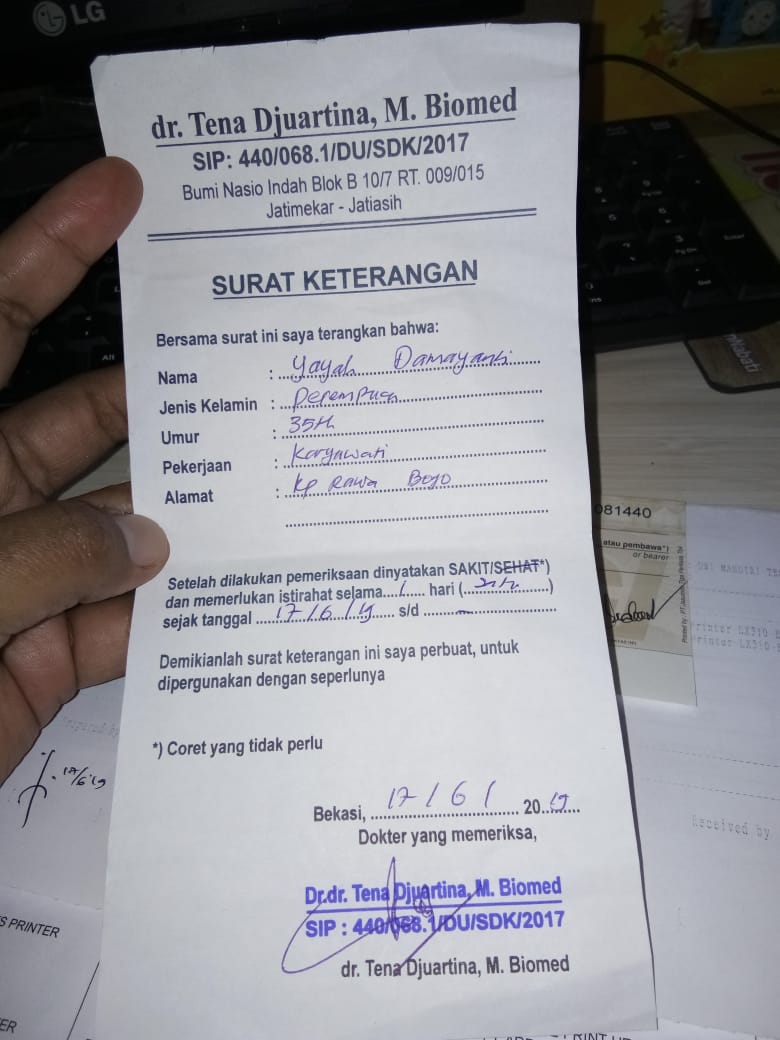 LG
dr. Tena Djuartina, M. Biomed
SIP: 440/068.1/DU/SDK/2017
Bumi Nasio Indah Blok B 10/7 RT. 009/015
Jatimekar - Jatiasih
SURAT KETERANGAN
Bersama surat ini saya terangkan bahwa:
Nama : Yayah Damayanti
Jenis Kelamin : Perempuan
Umur : 35th
Pekerjaan : Karyawati
Alamat : Kp Rawa Bogo
Setelah dilakukan pemeriksaan dinyatakan SAKIT/SEHAT*)
dan memerlukan istirahat selama 1 hari ( )
sejak tanggal 17/6/19 s/d -
Demikianlah surat keterangan ini saya perbuat, untuk
dipergunakan dengan seperlunya
*) Coret yang tidak perlu
Bekasi, 17/6/ 2019
Dokter yang memeriksa,
Dr.dr. Tena Djuartina, M. Biomed
SIP : 440/068.1/DU/SDK/2017
dr. Tena Djuartina, M. Biomed
081440
atau pembawa*)
or bearer
17/6/19
Received by
S PRINTER
ER